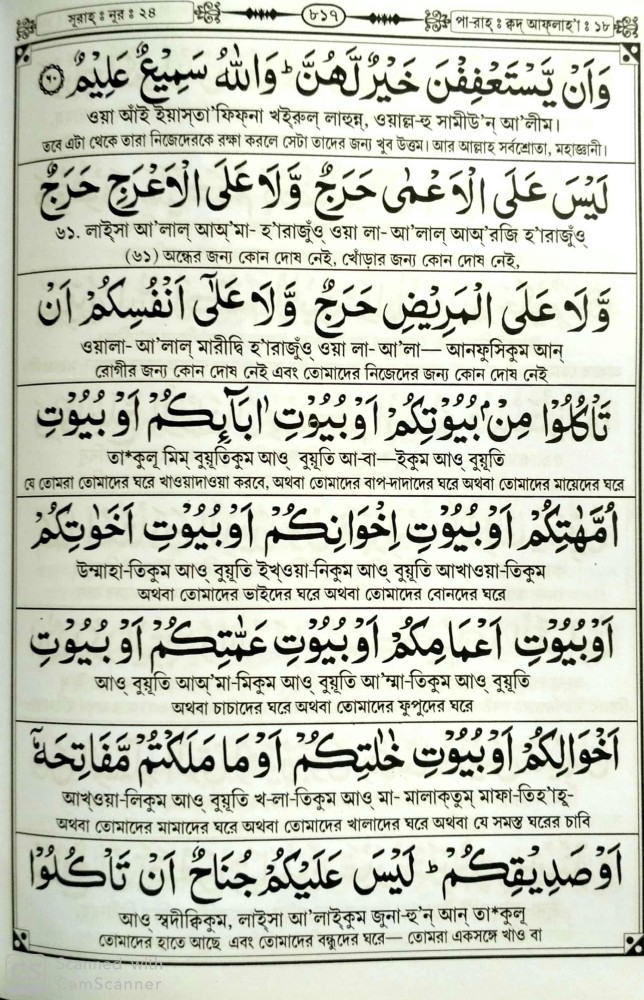 সূরাহ্ : নূর : ২৪
৮১৭
পা-রাহ্ : ক্বদ্ আফ্লাহ'া : ১৮
وَاَنْ يَّسْتَعْفِفْنَ خَيْرٌ لَّهُنَّ ؕ وَاللّٰهُ سَمِيْعٌ عَلِيْمٌ ﴿٦٠﴾
ওয়া আঁই ইয়াস্তা'ফিফ্না খইরুল্ লাহুন্ন, ওয়াল্ল-হু সামীউ'ন্ আ'লীম।
তবে এটা থেকে তারা নিজেদেরকে রক্ষা করলে সেটা তাদের জন্য খুব উত্তম। আর আল্লাহ সর্বশ্রোতা, মহাজ্ঞানী।
لَيْسَ عَلَى الْاَعْمٰى حَرَجٌ وَّلَا عَلَى الْاَعْرَجِ حَرَجٌ
৬১. লাইসা আ'লাল্ আঅ্'মা- হ'রাজুঁও্ ওয়া লা- আ'লাল্ আঅ্'রজি হ'ারাজুঁও্
(৬১) অন্ধের জন্য কোন দোষ নেই, খোঁড়ার জন্য কোন দোষ নেই,
وَّلَا عَلَى الْمَرِيْضِ حَرَجٌ وَّلَا عَلٰٓى اَنْفُسِكُمْ اَنْ
ওয়ালা- আ'লাল্ মারীদ্বি হ'ারাজুঁও্ ওয়া লা- আ'লা— আনফুসিকুম আন্
রোগীর জন্য কোন দোষ নেই এবং তোমাদের নিজেদের জন্য কোন দোষ নেই
تَاْكُلُوْا مِنْۢ بُيُوْتِكُمْ اَوْ بُيُوْتِ اٰبَآئِكُمْ اَوْ بُيُوْتِ
তা*কুলূ মিম্ বুয়ূতিকুম আও্ বুয়ূতি আ-বা— ইকুম আও্ বুয়ূতি
যে তোমরা তোমাদের ঘরে খাওয়াদাওয়া করবে, অথবা তোমাদের বাপ-দাদাদের ঘরে অথবা তোমাদের মায়েদের ঘরে
اُمَّهٰتِكُمْ اَوْ بُيُوْتِ اِخْوَانِكُمْ اَوْ بُيُوْتِ اَخَوٰتِكُمْ
উম্মাহা-তিকুম আও্ বুয়ূতি ইখ্ওয়া-নিকুম আও্ বুয়ূতি আখাওয়া-তিকুম
অথবা তোমাদের ভাইদের ঘরে অথবা তোমাদের বোনদের ঘরে
اَوْ بُيُوْتِ اَعْمَامِكُمْ اَوْ بُيُوْتِ عَمّٰتِكُمْ اَوْ بُيُوْتِ
আও্ বুয়ূতি আঅ্'মা-মিকুম আও্ বুয়ূতি আ'ম্মা-তিকুম আও্ বুয়ূতি
অথবা চাচাদের ঘরে অথবা তোমাদের ফুপুদের ঘরে
اَخْوَالِكُمْ اَوْ بُيُوْتِ خٰلٰتِكُمْ اَوْ مَا مَلَكْتُمْ مَّفَاتِحَهٗٓ
আখ্ওয়া-লিকুম আও্ বুয়ূতি খ-লা-তিকুম আও্ মা- মালাক্তুম্ মাফা-তিহ'াহূ-
অথবা তোমাদের মামাদের ঘরে অথবা তোমাদের খালাদের ঘরে অথবা যে সমস্ত ঘরের চাবি
اَوْ صَدِيْقِكُمْ ؕ لَيْسَ عَلَيْكُمْ جُنَاحٌ اَنْ تَاْكُلُوْا
আও্ স্বদীক্বিকুম, লাই্সা আ'লাই্কুম জুনা-হু'ন্ আন্ তা*কুলূ
তোমাদের হাতে আছে এবং তোমাদের বন্ধুদের ঘরে— তোমরা একসঙ্গে খাও বা
Scanned with
CamScanner